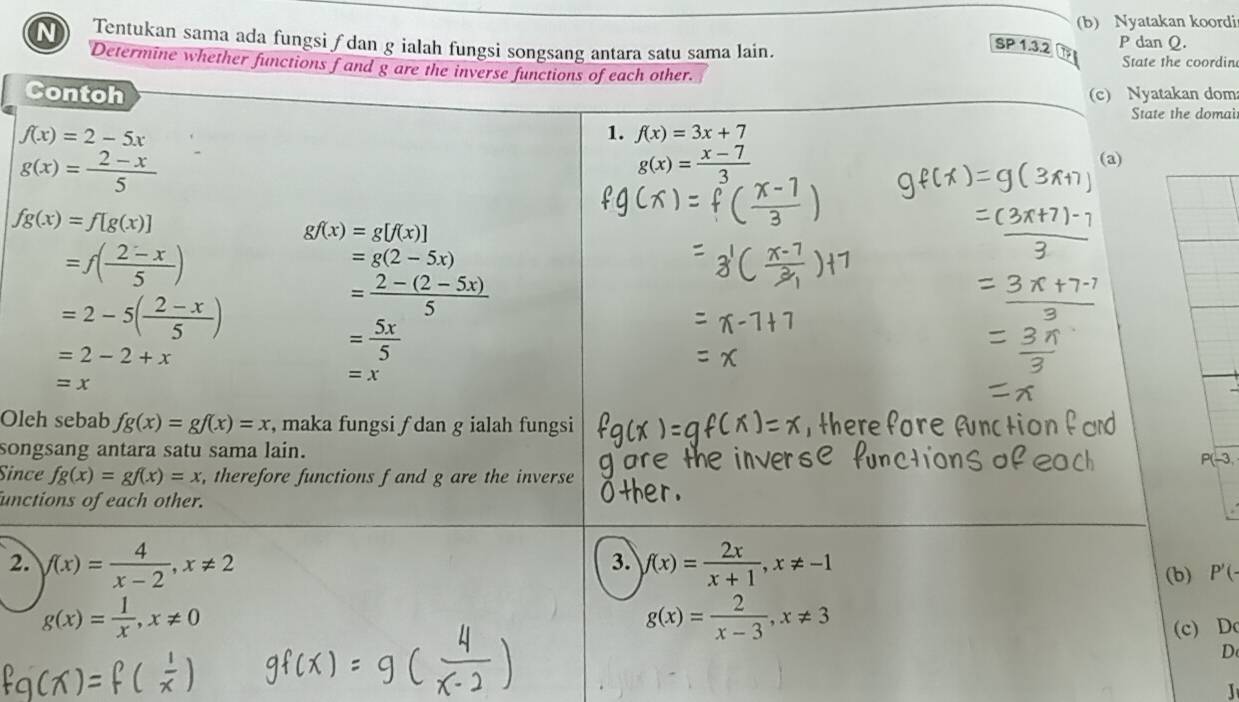 N Tentukan sama ada fungsi f dan g ialah fungsi songsang antara satu sama lain.
Determine whether functions f and g are the inverse functions of each other.
SP 1.3.2
Contoh
f(x) = 2 − 5x
g(x) = (2 − x)/5
fg(x) = f[g(x)]
= f((2 − x)/5)
= 2 − 5((2 − x)/5)
= 2 − 2 + x
= x
gf(x) = g[f(x)]
= g(2 − 5x)
= (2 − (2 − 5x))/5
= 5x/5
= x
Oleh sebab fg(x) = gf(x) = x, maka fungsi f dan g ialah fungsi
songsang antara satu sama lain.
Since fg(x) = gf(x) = x, therefore functions f and g are the inverse
functions of each other.
1. f(x) = 3x + 7
g(x) = (x − 7)/3
fg(x) = f((x-7)/3)
= 3((x-7)/3)+7
= x-7+7
= x
gf(x) = g(3x+7)
= ((3x+7)-7)/3
= (3x+7-7)/3
= 3x/3
= x
fg(x)=gf(x)=x, therefore function f and
g are the inverse functions of each
other.
2. f(x) = 4/(x − 2), x ≠ 2
g(x) = 1/x, x ≠ 0
fg(x) = f(1/x)
gf(x) = g(4/(x-2))
3. f(x) = 2x/(x + 1), x ≠ −1
g(x) = 2/(x − 3), x ≠ 3
(b) Nyatakan koordi
P dan Q.
State the coordin
(c) Nyatakan dom
State the domai
(a)
P(−3,
(b) P′(-
(c) Do
D